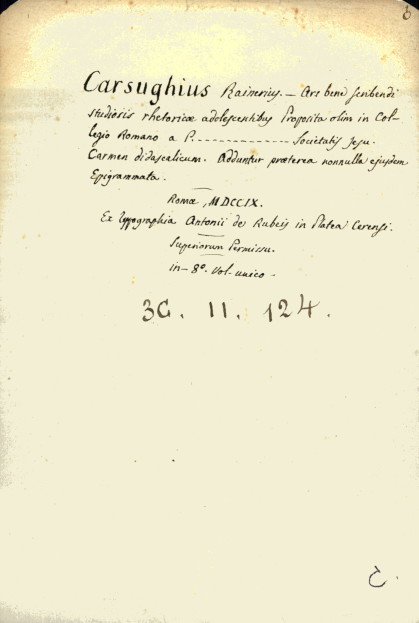 6
Carsughius Rainerius. — Ars bene scribendi
studiosis rhetoricæ adolescentibus Proposita olim in Col-
legio Romano a P. -------------- Societatis Jesu.
Carmen didascalicum. Adduntur præterea nonnulla ejusdem
Epigrammata.
Romæ, MDCCIX.
Ex Typographia Antonii de Rubeis in Platea Cerensi.
Superiorum Permissu.
in-8º. Vol. unico -
3C. 11. 124.
C.